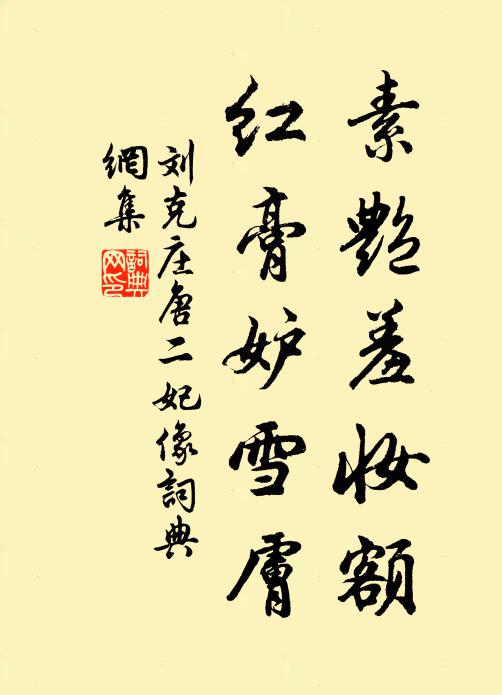 素艶羞妝額
红膏妒雪膚
刘克庄唐二妃像詞典
網集
詞典
网印